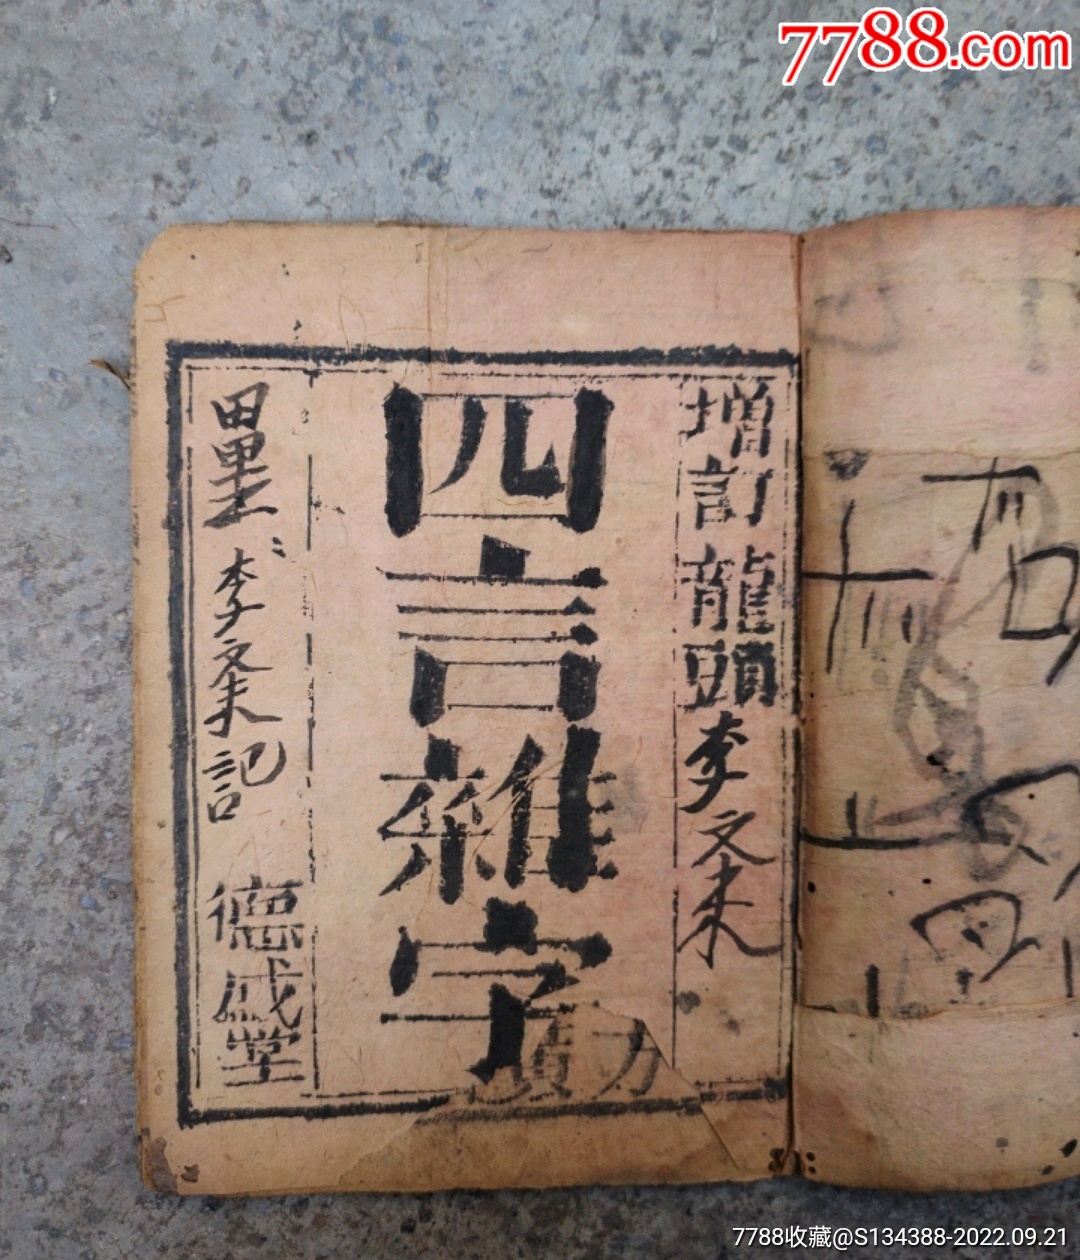 7788.com
增訂龍頭
李文来
四言雜字
廣
方
墨
李文来記
德成堂
7788收藏@S134388-2022.09.21